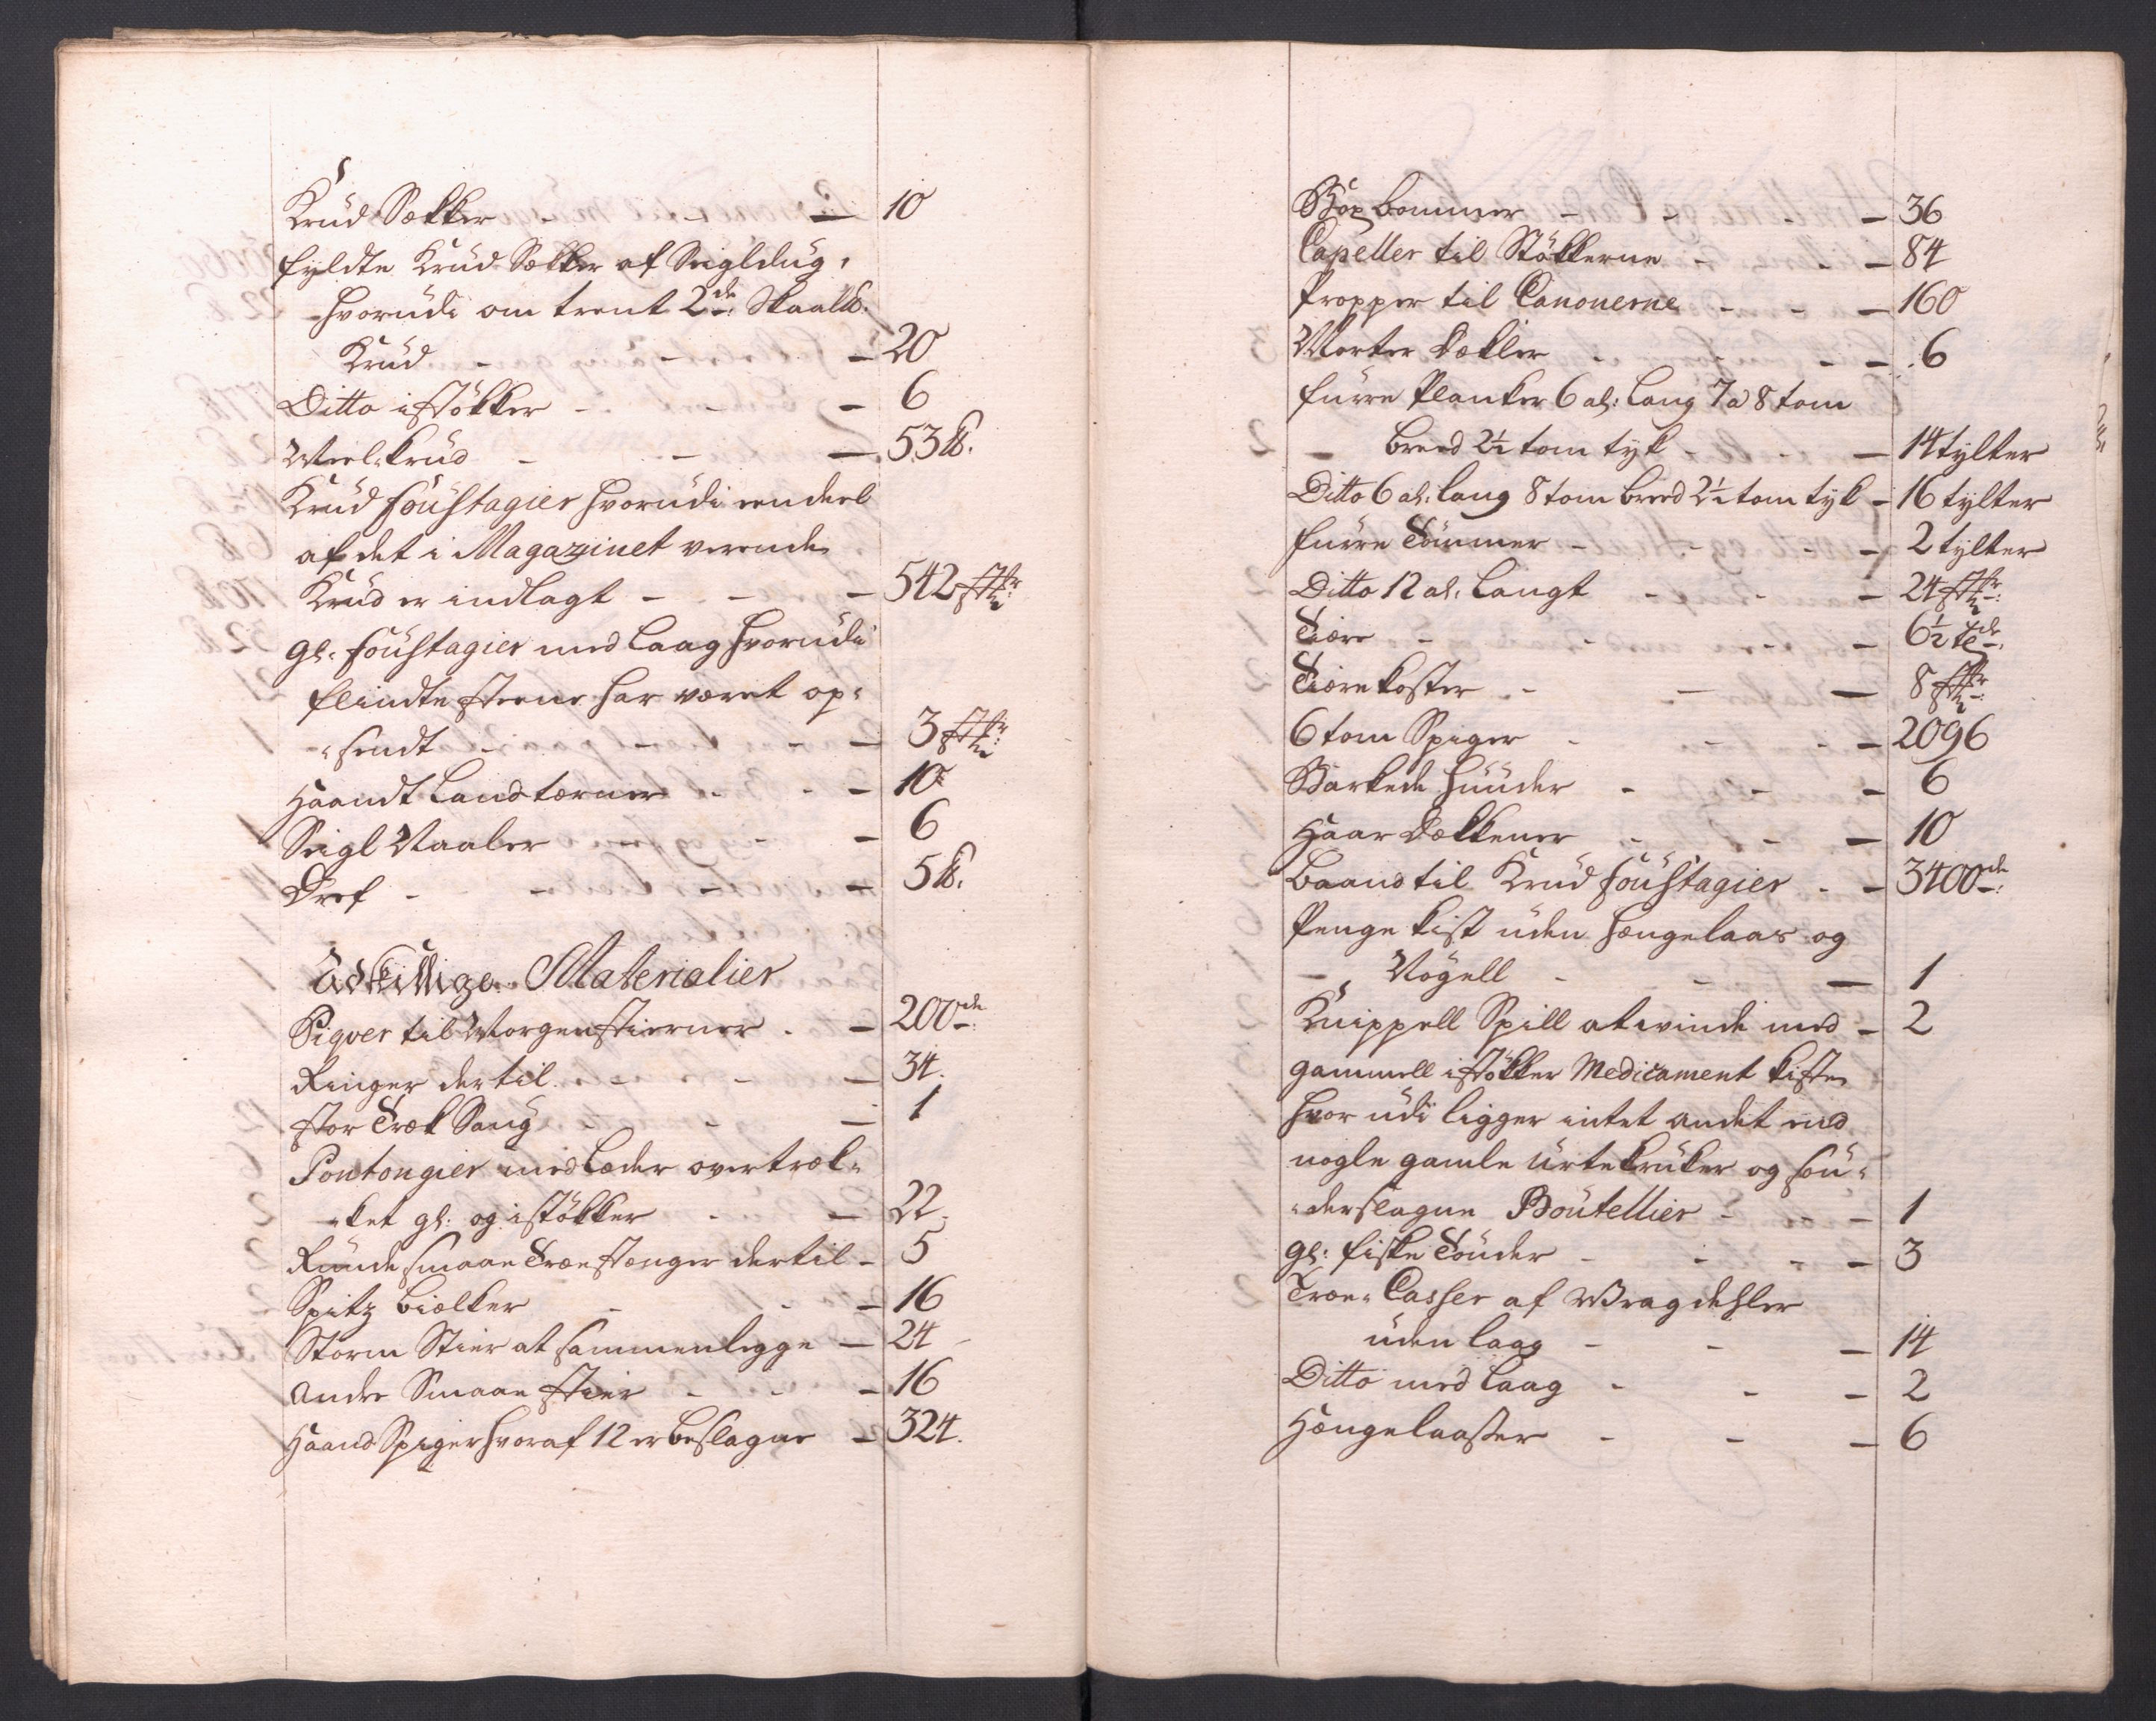 Krud Sækker - - - 10
fyldte Krud Sækker af Seigldug,
hvorudi om trent 2de Skaal℔.
Krud - - - 20
Ditto i støkker - - - 6
Meel-krud - - - 53 ℔.
Krud foustagier hvorudi eendeel
af det i Magazinet verende
Krud er indlagt - - - 542 stkr:
gl. foustagier med laag hvorudi
flindte steene har været op-
-sendt - - - 3 stkr:
Haandt Landtærner - - - 10
Seigl Naaler - - - 6
Dref - - - 5 ℔.
Adskillige Materialier
Piqver til Morgenstierner - 200de:
Ringer dertil - - - 34.
stor Træk Saug - - - 1
Pontongier med læder overtræk-
-ket gl: og i støkker - - 22.
Runde smaae Træe stænger dertil - 5
Spitz bielker - - - 16
Storm Stier at sammenligge - 24
andre Smaae stier - - - 16
Haand Spiger hvoraf 12 er beslagne - 324.
bommer - - - 36
Capeller til Støkkerne - - - 84
Propper til Canonerne - - - 160
Morter Dækler - - - 6
furre Planker 6 al: lang 7 a 8 tom
breed 2½ tom tyk - - - 14 tylter
Ditto 6 al. lang 8 tom breed 2½ tom tyk - 16 tylter
furre Tømmer - - - 2 tylter
Ditto 12 al. Langt - - - 24 stkr:
Tiære - - - 6½ tde:
Tiære koster - - - 8 stkr:
6 tom Spiger - - - 2096
Barkede huuder - - - 6
Haar Dækkener - - - 10
baand til Krud foustagier - - 3400de:
Penge kist uden hængelaas og
Nøgell - - - 1
Knippell Spill at winde med - 2
gammell i støkker Medicament kiste
hvor udi ligger intet andet end
nogle gamle Urtekruker og søn-
-derslagne Boutellier - - - 1
gl: fiske Tønder - - - 3
Træe-Casser af Wragdehler
uden laag - - - 14
Ditto med laag - - - 2
Hængelaaser - - - 6